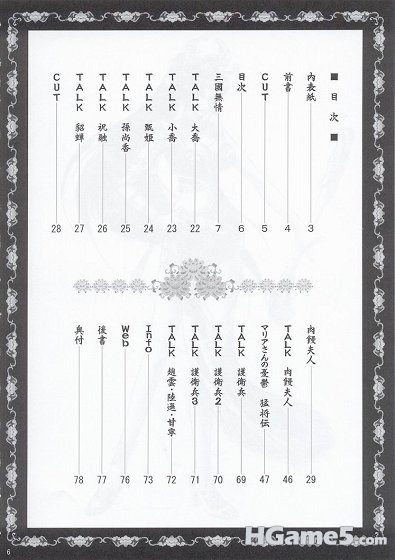 ■ 目次 ■
内表紙 3
前書 4
CUT 5
目次 6
三國無情 7
TALK 大喬 22
TALK 小喬 23
TALK 甄姫 24
TALK 孫尚香 25
TALK 祝融 26
TALK 貂蝉 27
CUT 28
肉饅夫人 29
TALK 肉饅夫人 46
マリアさんの憂鬱 猛将伝 47
TALK 護衛兵 69
TALK 護衛兵2 70
TALK 護衛兵3 71
TALK 趙雲・陸遜・甘寧 72
Info 73
Web 76
後書 77
奥付 78
6
HGame5.com